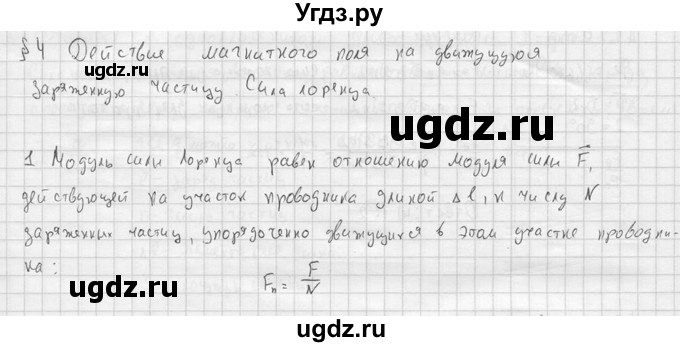 Угдз.ру
§4 Действие магнитного поля на движущуюся
заряженную частицу. Сила лоренца
ugdz.ru
ugdz.ru
ugdz.ru
1 Модуль силы Лоренца равен отношению модуля силы F⃗,
действующей на участок проводника длиной Δl, к числу N
заряженных частиц, упорядоченно движущихся в этом участке проводни-
ка:
Fл = F/N
ugdz.ru
ugdz.ru
ugdz.ru